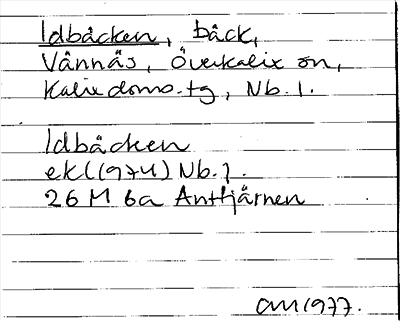 Idbäcken, bäck,
Vännäs, Överkalix sn,
Kalix doms.tg, Nb.l.
Idbäcken
ek((1974) Nb.l.
26 M 6a Anttjärnen
am1977.